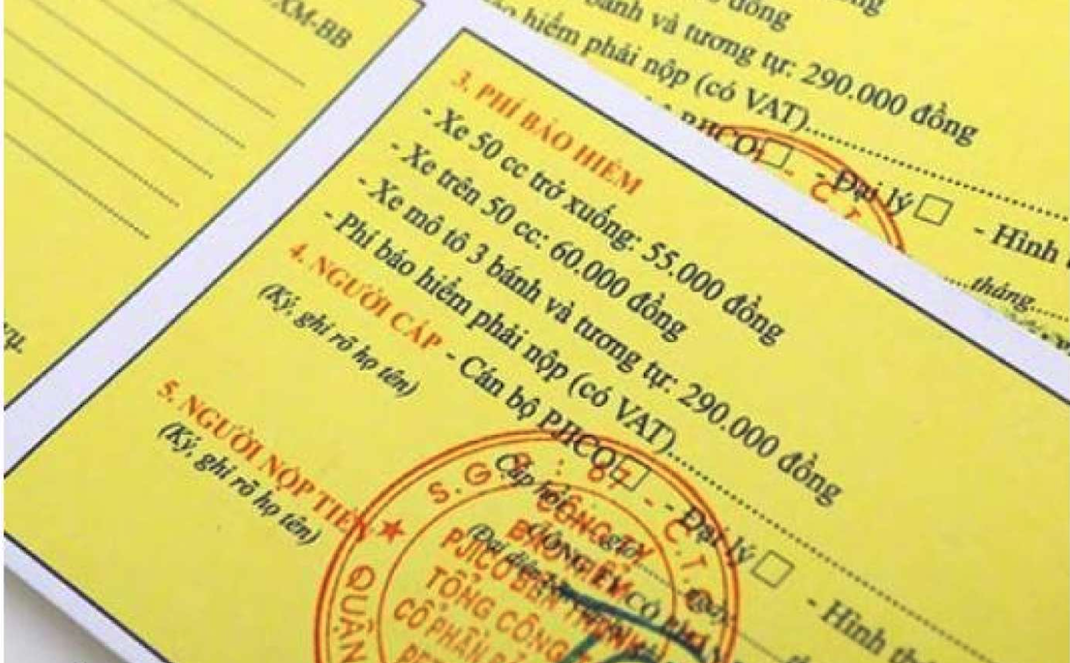 XM-BB
đồng
bánh và tương tự: 290.000 đồng
hiểm phải nộp (có VAT)
PJICO □ - Đại lý □ - Hình
tháng
3. PHÍ BẢO HIỂM
- Xe 50 cc trở xuống: 55.000 đồng
- Xe trên 50 cc: 60.000 đồng
- Xe mô tô 3 bánh và tương tự: 290.000 đồng
- Phí bảo hiểm phải nộp (có VAT)
4. NGƯỜI CẤP - Cán bộ PJICO □ - Đại lý □ - Hình
(Ký, ghi rõ họ tên)
Cấp hồi
5. NGƯỜI NỘP TIỀN
(Ký, ghi rõ họ tên)
CÔNG TY
BẢO HIỂM
PJICO BẾN THÀNH
TỔNG CÔNG
CỔ PHẦN
QUẬN